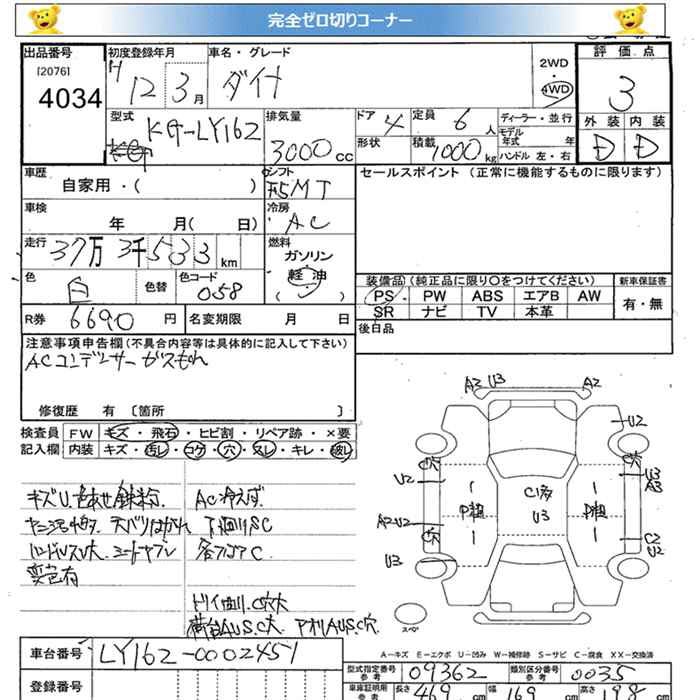 完全ゼロ切りコーナー
出品番号
[2076]
4034
初度登録年月
H 12 3月
車名・グレード
ダイナ
2WD
・
4WD
評価点
3
外装 内装
D D
型式
KG-LY162
排気量
3000cc
ドア 4
形状
定員 6人
積載 1000kg
ディーラー・並行
モデル年式 年
ハンドル 左・右
車歴
自家用・( )
シフト
F5MT
車検
年 月( 日)
冷房
AC
セールスポイント(正常に機能するものに限ります)
走行
37万3千533km
燃料
ガソリン
軽油
( )
色
白
色替
色コード
058
装備品(純正品に限り〇をつけてください)
新車保証書
PS PW ABS エアB AW
SR ナビ TV 本革
有・無
R券 6690円
名変期限 月 日
後日品
注意事項申告欄(不具合内容等は具体的に記入して下さい)
ACコンデンサーガスもれ
修復歴 有〔箇所 〕
検査員 FW キズ・飛石・ヒビ割・リペア跡・×要
記入欄 内装 キズ・汚レ・コゲ・穴・スレ・キレ・破レ
キズU、色あせ鉄粉 AC冷えず
天バリはがれ 下回りSC
異音有
A2 U3 A2
U2
穴
U2 U3
A3
P植 C1多 U3 P植
A2 U2
穴 C2
U2
U3
スペア
A-キズ E-エクボ U-凹み W-補修跡 S-サビ C-腐食 XX-交換済
車台番号 LY162-0002451
登録番号
型式指定番号 参考 09362
類別区分番号 参考 0035
車庫証明用 参考 長さ 469cm 幅 169cm 高さ 198cm